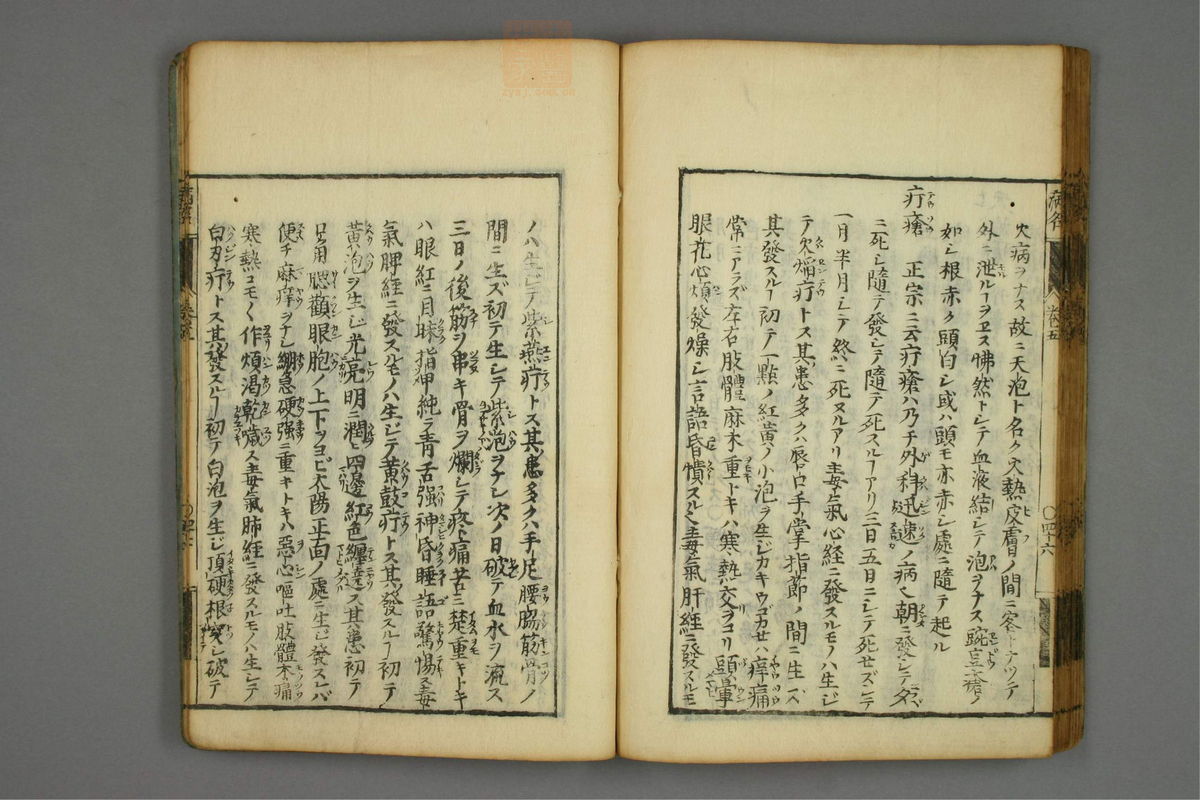 火病ヲナス故ニ天泡ト名ク火熱皮膚ノ間ニ客トナツテ
外ニ泄ルヿヲヱス怫然トシテ血液結シテ泡ヲナス豌豆瘡ノ
如シ根赤ク頭白シ或ハ頭モ亦赤シ處ニ隨テ起ル
疔瘡 正宗ニ云疔瘡ハ乃チ外科迅速ノ病也朝ニ發シテ夕
ニ死シ隨テ發シテ隨テ死スルヿアリ三日五日ニシテ死セズシテ
一月半月シテ終ニ死スルアリ毒氣心經ニ發スルモノハ生シ
テ火焔疔トス其患多クハ唇口手掌指節ノ間ニ生ス
其發スルヿ初テ一點ノ紅黄ノ小泡ヲ生シカキウゴカセハ痒痛
常ニアラズ左右肢體麻木重トキハ寒熱交ヲコリ頭暈
眼花心煩發燥シ言語昏憒スル也毒氣肝經ニ發スルモ
ノハ生シテ紫燕疔トス其患多クハ手足腰脇筋骨ノ
間ニ生ズ初テ生シテ紫泡ヲナシ次ノ日破テ血水ヲ流ス
三日ノ後筋ヲ串キ骨ヲ爛シテ疼痛苦楚重キトキ
ハ眼紅ニ目昧指甲純ラ青舌强神昏睡語驚惕ス毒
氣脾經ニ發スルモノハ生シテ黄鼓疔トス其發スルヿ初テ
黄泡ヲ生シ光亮明ニ潤ヒ四邊紅色纏遶ス其患初テ
口角腮顴眼胞ノ上下ヲヨビ太陽正面ノ處ニ生シ發スレバ
便チ麻痒ヲナシ繃急硬强ニ重キトキハ惡心嘔吐肢體木痛
寒熱コモ〱作煩渇乾噦ス毒氣肺經ニ發スルモノハ生シテ
白刃疔トス其發スルヿ初テ白泡ヲ生シ頂硬根突シ破テ
病名
卷五
〇四十六